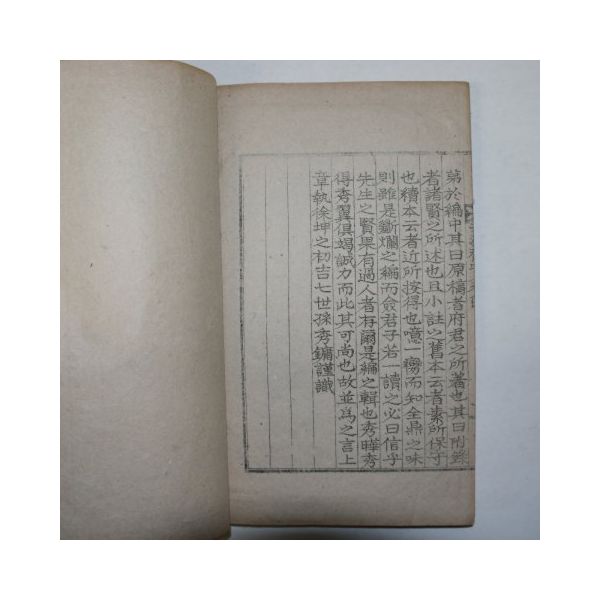 第於編中其曰原稿者府君之所著也其曰附錄
者諸賢之所述也且小註以舊本云者素所保守
也續本云者近所按得也噫一臠而知全鼎之味
則雖是斷爛之編而僉君子若一讀之必曰信乎
先生之賢果有過人者存爾是編之輯也秀曄秀
得秀翼俱竭誠力而此其可尚也故並爲之言上
章執徐坤之初吉七世孫秀鏞謹識